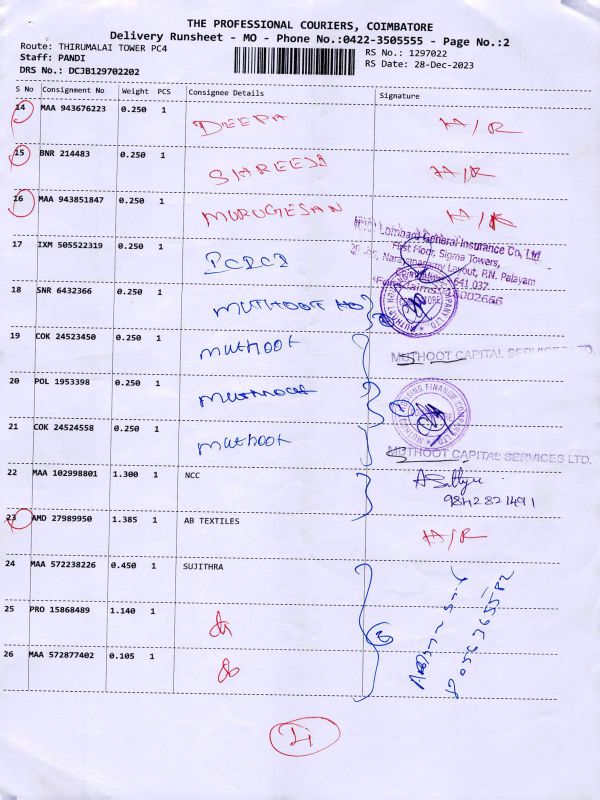 THE PROFESSIONAL COURIERS, COIMBATORE
Delivery Runsheet - MO - Phone No.:0422-3505555 - Page No.:2
Route: THIRUMALAI TOWER PC4
RS No.: 1297022
Staff: PANDI
RS Date: 28-Dec-2023
DRS No.: DCJB129702202
S No Consignment No Weight PCS Consignee Details Signature
14 MAA 943676223 0.250 1 DEEPA H/R
15 BNR 214483 0.250 1 H/R
16 MAA 943851847 0.250 1 MURUGESAN H/R
Lombard General Insurance Co, Ltd
First Floor, Sigma Towers,
Layout, P.N. Palayam
641 037.
17 IXM 505522319 0.250 1
18 SNR 6432366 0.250 1 MUTHOOT HO
19 COK 24523450 0.250 1 muthoot MUTHOOT CAPITAL SERVICES LTD.
20 POL 1953398 0.250 1 muthoot
21 COK 24524558 0.250 1 muthoot MUTHOOT CAPITAL SERVICES LTD.
22 MAA 102998801 1.300 1 NCC
9842821491
23 AMD 27989950 1.385 1 AB TEXTILES H/R
24 MAA 572238226 0.450 1 SUJITHRA
25 PRO 15868489 1.140 1 do
26 MAA 572877402 0.105 1 do